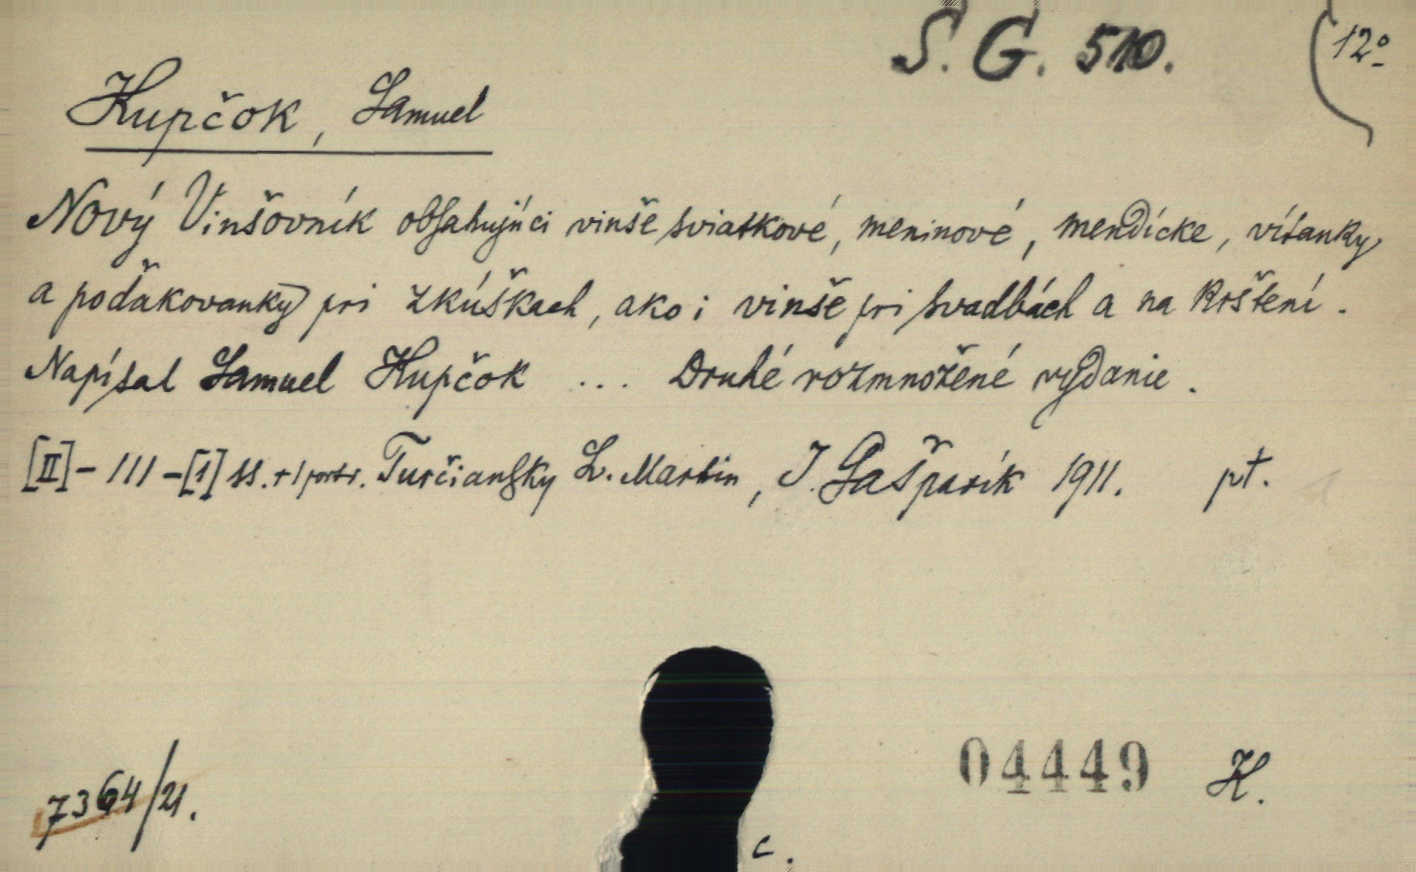 S. G. 510. (12°
Kupčok, Samuel
Nový Vinšovník obsahujúci vinše sviatkové, meninové, mendícke, vítanky
a poďakovanky pri zkúškach, ako i vinše pri svadbách a na Krštení.
Napísal Samuel Kupčok ... Druhé rozmnožené vydanie.
[II]-111-[1] ss. + 1 portr. Turčiansky S. Martin, J. Gašparík 1911. pt.
04449 K.
7364/21.
c.